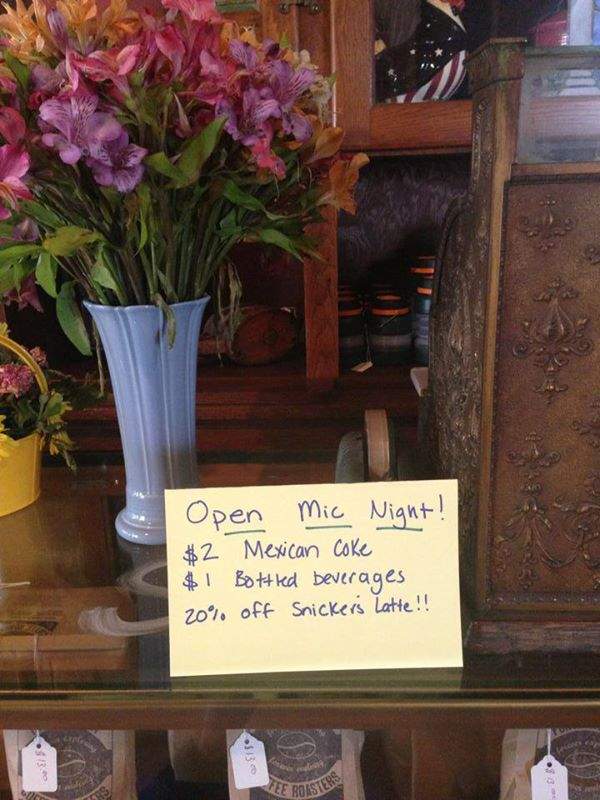 Open Mic Night!
$2 Mexican Coke
$1 Bottled beverages
20% off Snickers Latte!!
$13.00
$13.00
FEE ROASTERS